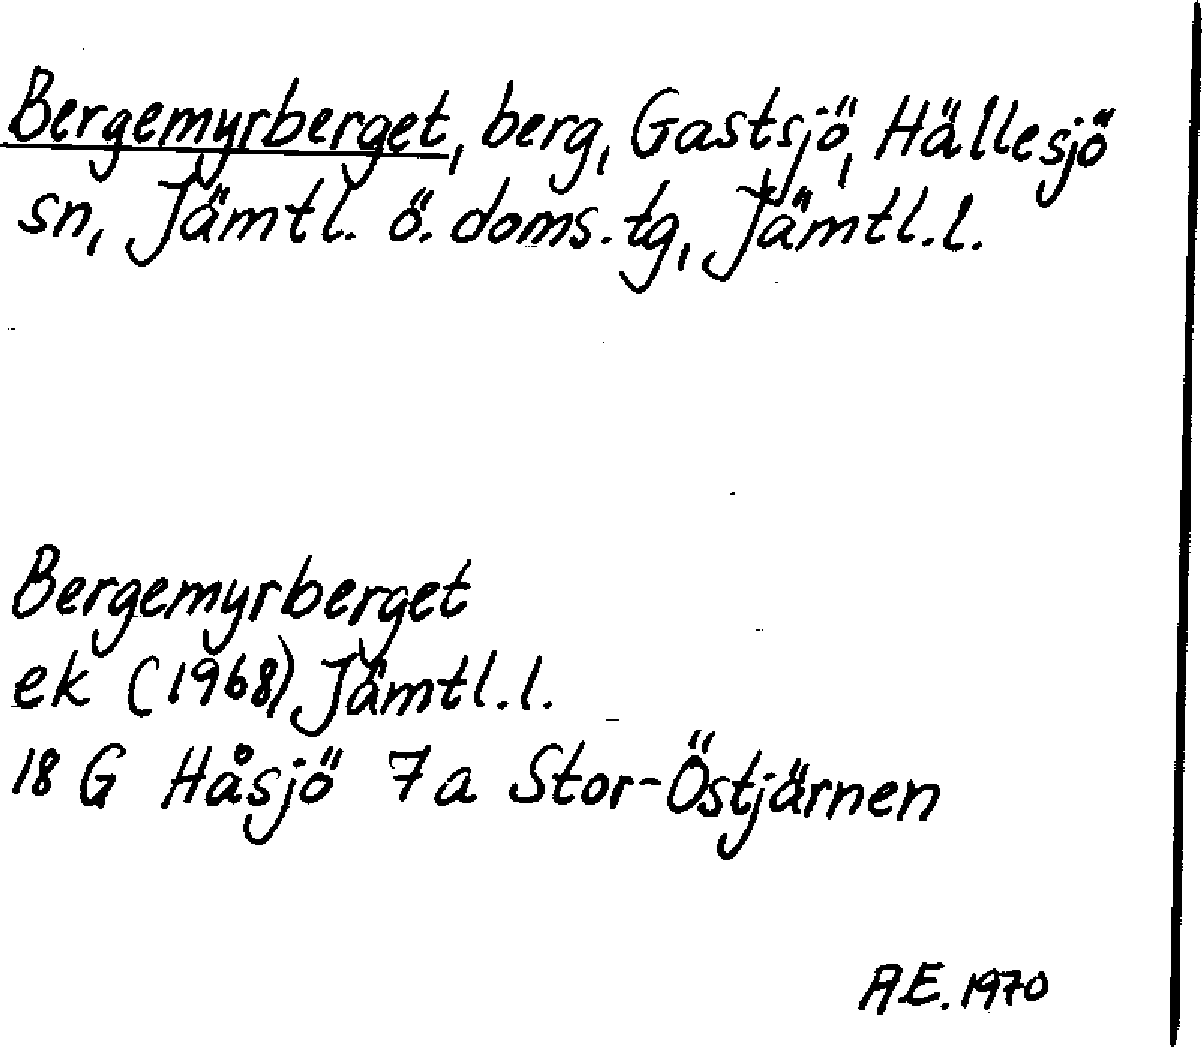 Bergemyrberget, berg, Gastsjö, Hällesjö
sn, Jämtl. ö. doms. tg, Jämtl. l.
Bergemyrberget
ek (1968) Jämtl. l.
18 G Håsjö 7a Stor-Östjärnen
A.E. 1970